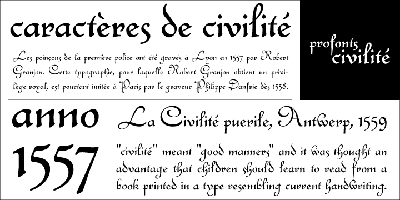 caractères de civilité
Les poinçons de la première police ont été gravés à Lyon en 1557 par Robert
Granjon. Cette typographie, pour laquelle Robert Granjon obtient un privi-
lège royal, est pourtant imitée à Paris par le graveur Philippe Danfrie dès 1558.
profonts
civilité
anno
1557
La Civilité puerile, Antwerp, 1559
"civilité" meant "good manners" and it was thought an
advantage that children should learn to read from a
book printed in a type resembling current handwriting.